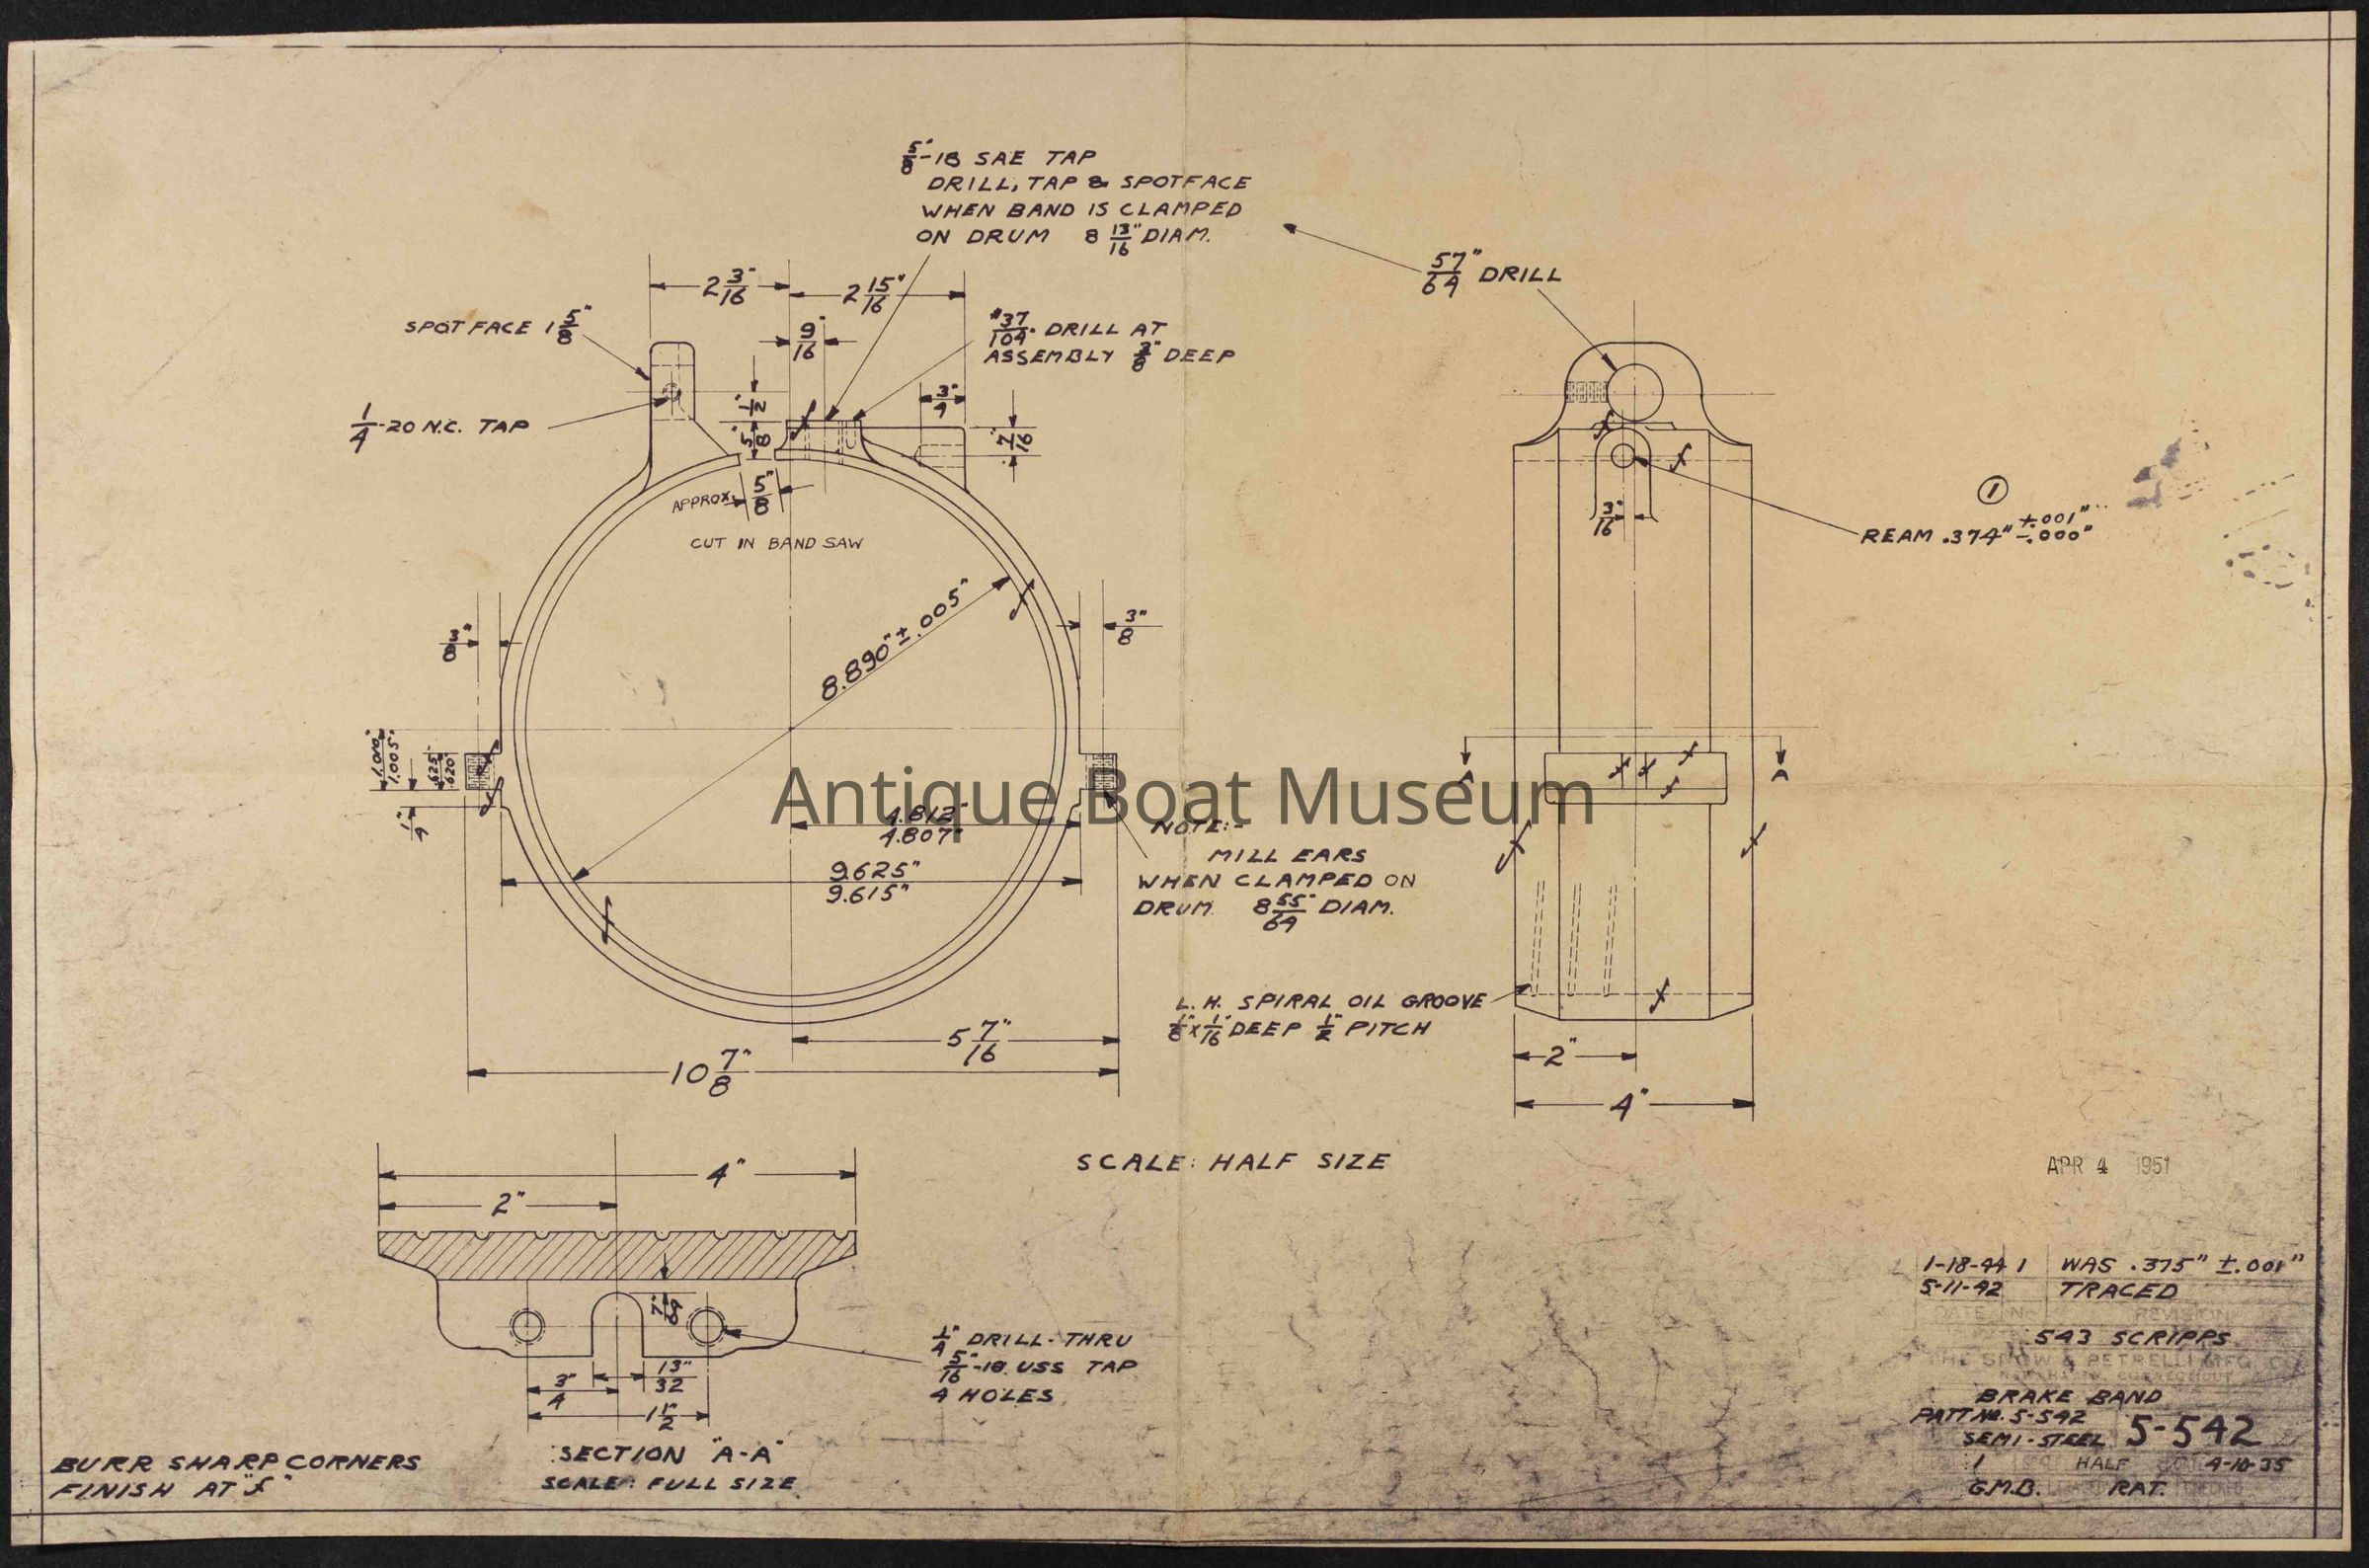 5/8"-18 SAE TAP
DRILL, TAP & SPOTFACE
WHEN BAND IS CLAMPED
ON DRUM 8 13/16" DIAM.
57/64" DRILL
2 3/16"
2 15/16"
SPOT FACE 1 5/8"
9/16"
DRILL AT
ASSEMBLY 3/8" DEEP
1/4-20 N.C. TAP
1/2"
3/4"
5/8"
7/16"
APPROX. 5/8"
CUT IN BAND SAW
3/16"
1
REAM .374" +.001"
-.000"
8.890" ±.005"
3/8"
3/8"
1.005"
.625"
.620"
1/4"
A
A
Antique Boat Museum
4.812"
4.807"
9.625"
9.615"
NOTE:-
MILL EARS
WHEN CLAMPED ON
DRUM 8 55/64" DIAM.
L. H. SPIRAL OIL GROOVE
1/8" x 1/16" DEEP 1/2" PITCH
5 7/16"
10 7/8"
2"
4"
SCALE: HALF SIZE
APR 4 1951
4"
2"
1/4" DRILL-THRU
5/16"-18 USS TAP
4 HOLES
3/4"
13/32"
1 1/2"
SECTION "A-A"
SCALE: FULL SIZE
BURR SHARP CORNERS
FINISH AT "f"
1-18-44 1 WAS .375" ±.001"
5-11-42 TRACED
DATE NO. REVISION
543 SCRIPPS
THE SNOW & PETRELLI MFG. CO.
NEW HAVEN, CONNECTICUT
BRAKE BAND
PATT NO. 5-542
SEMI-STEEL 5-542
1 HALF 4-10-35
G.M.B. RAT.